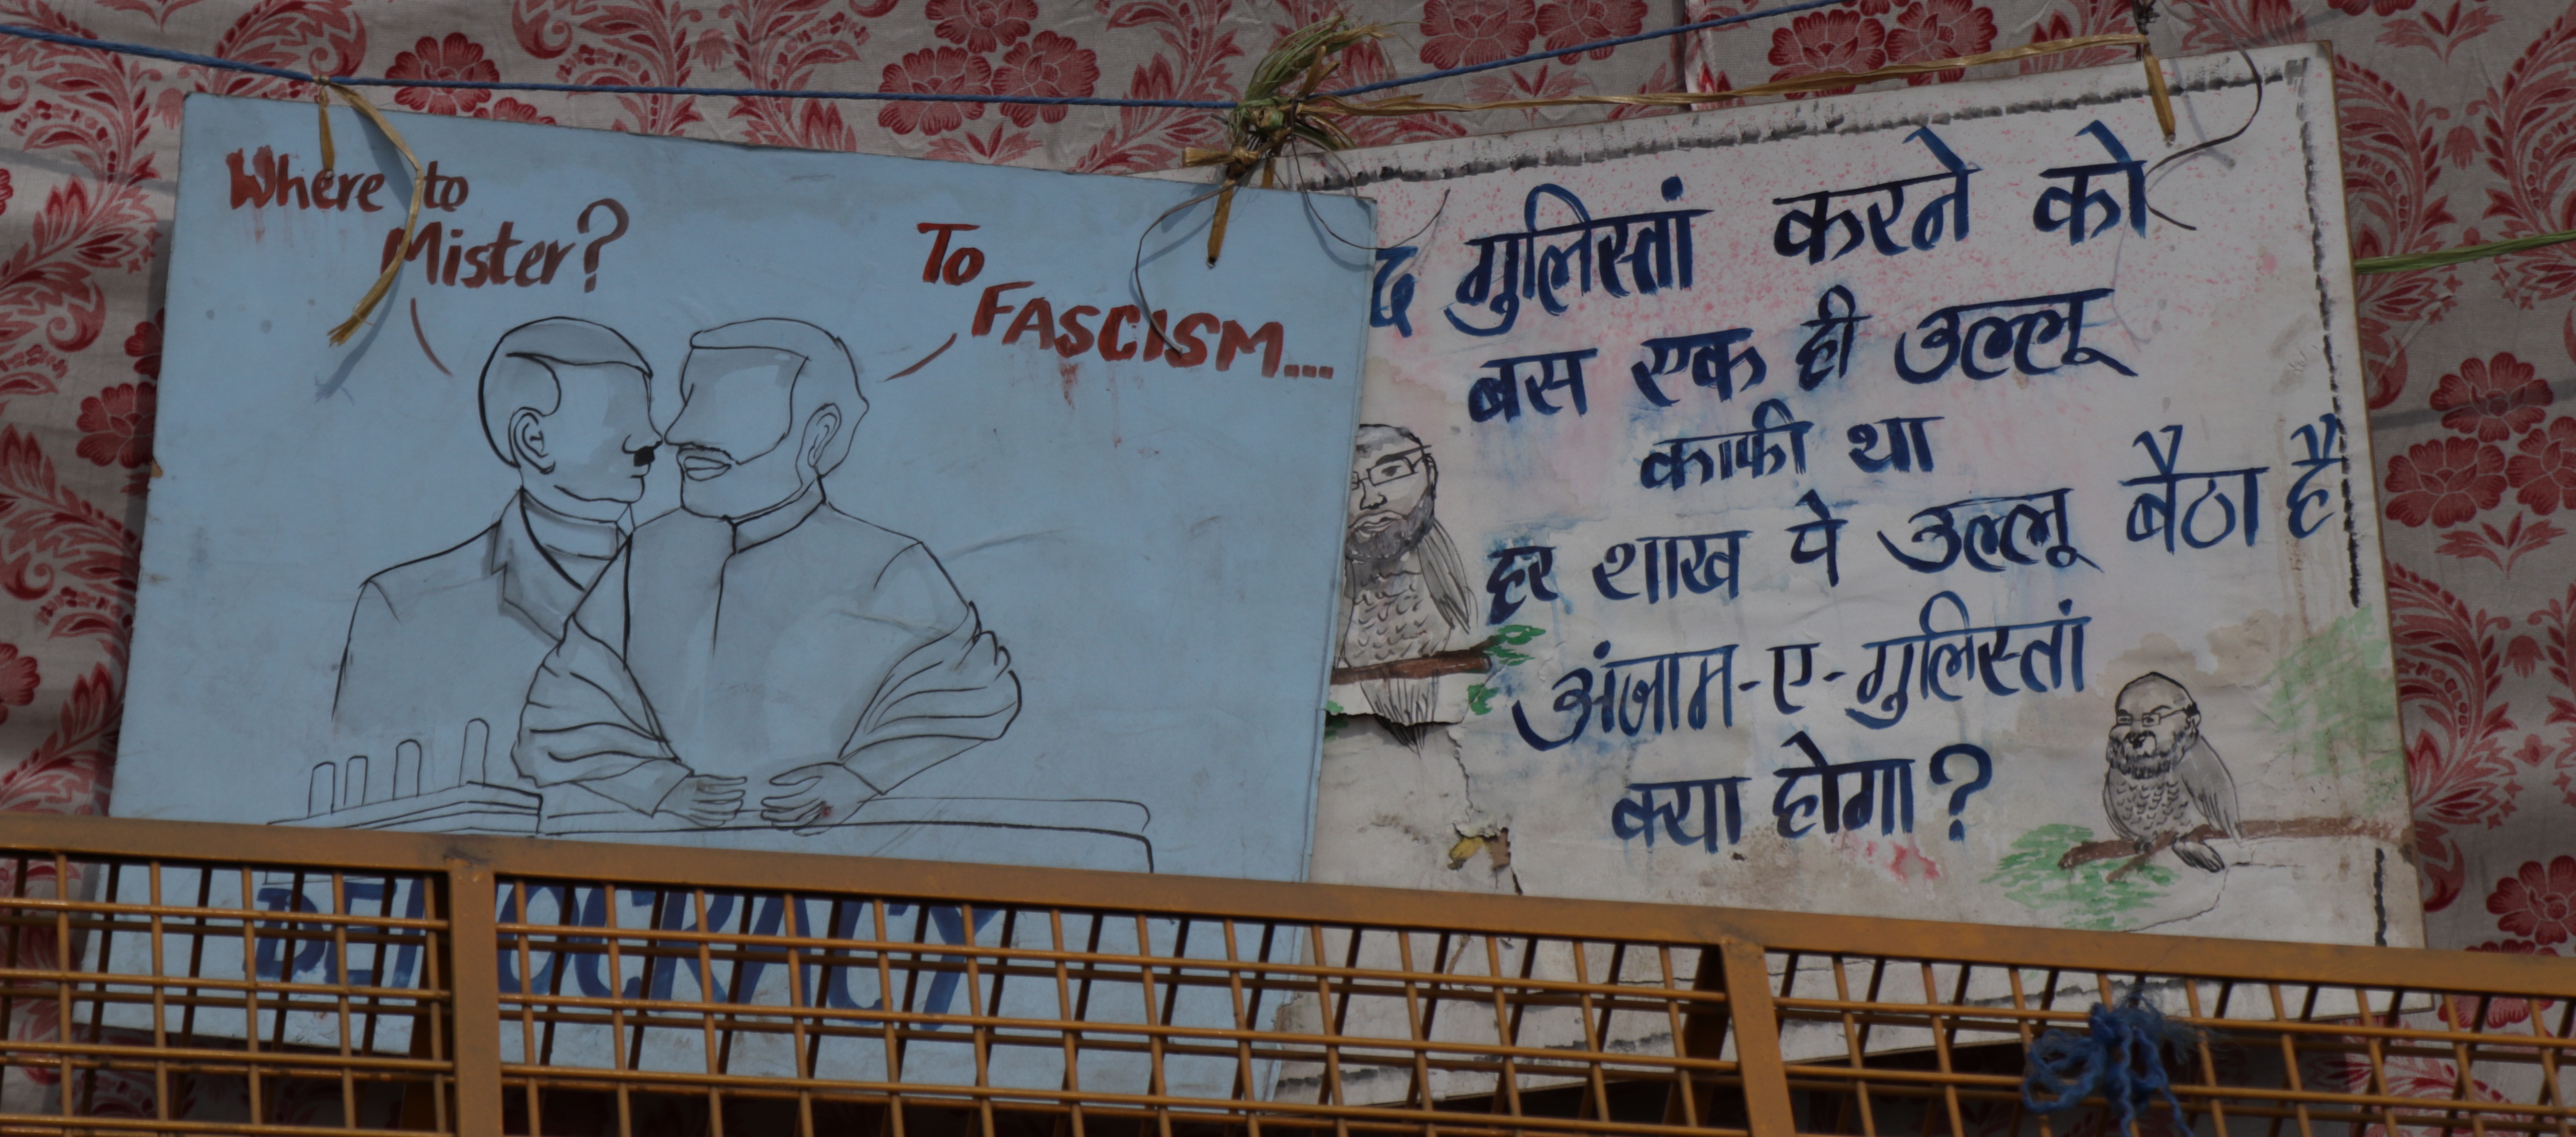 Where to
Mister?
To
FASCISM...
DEMOCRACY
गुलिस्तां करने को
बस एक ही उल्लू
काफी था
हर शाख पे उल्लू बैठा है
अंजाम-ए-गुलिस्तां
क्या होगा?